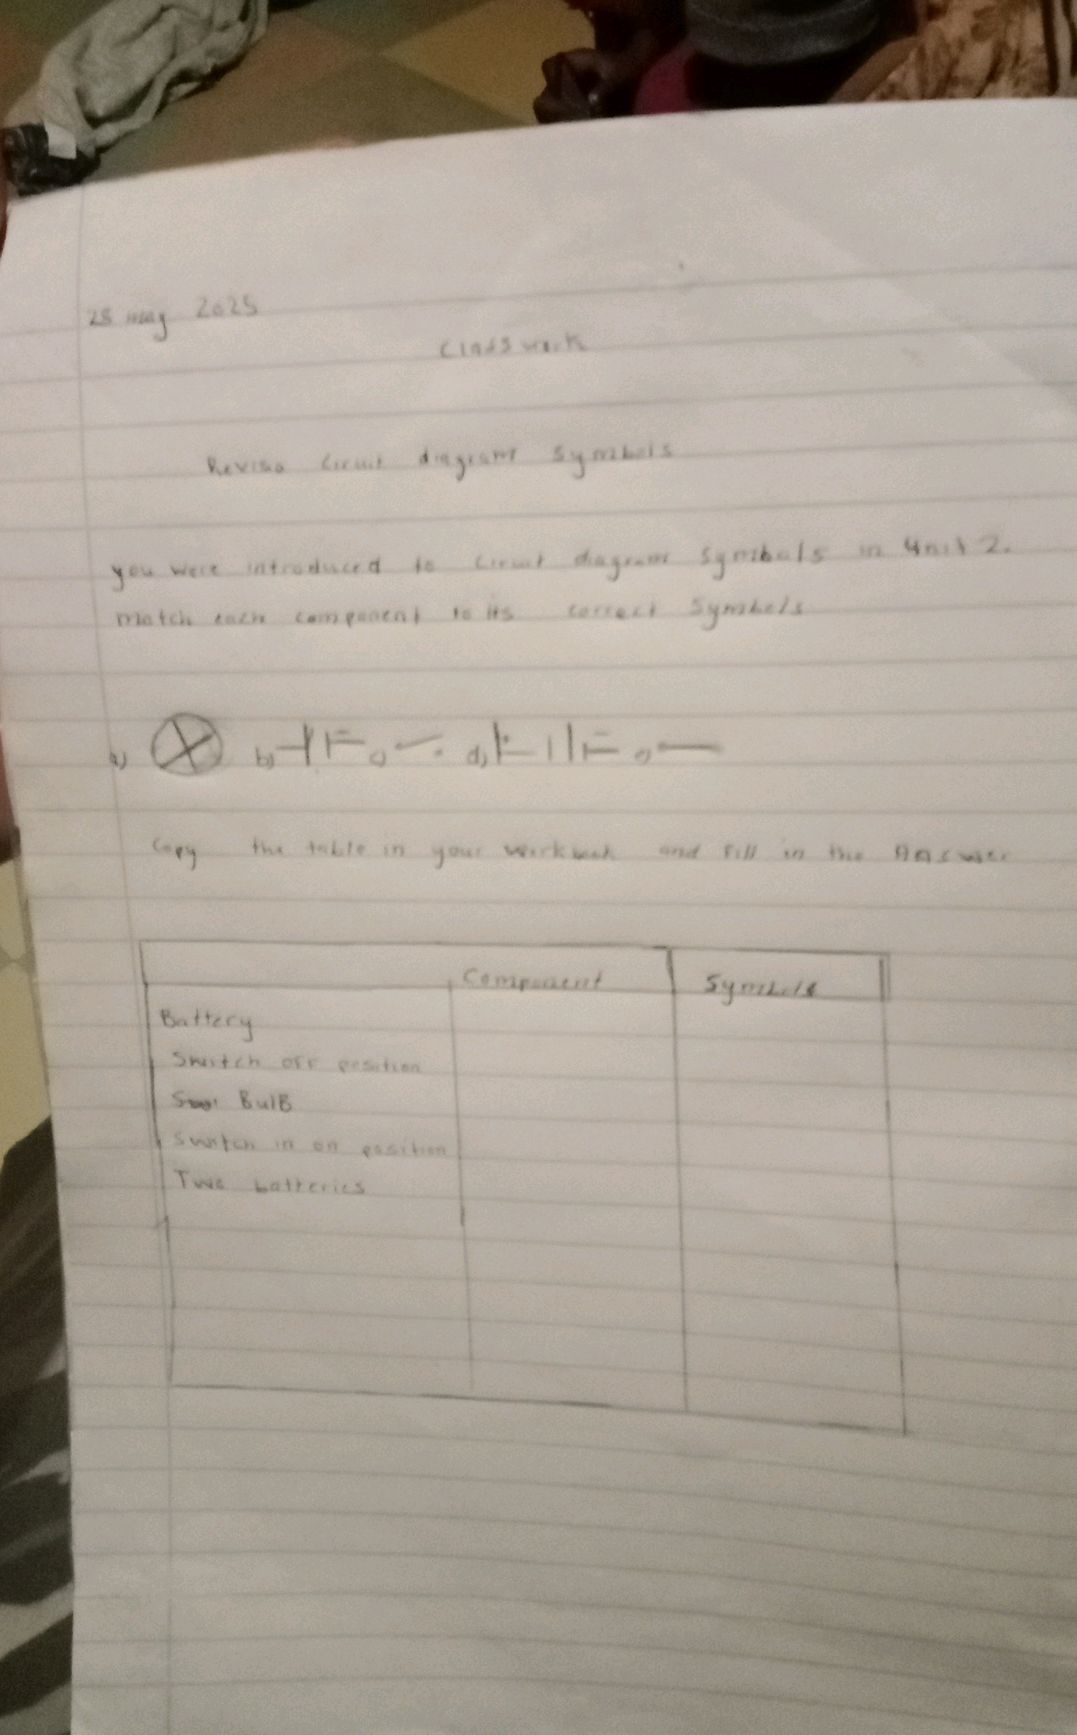 28 may 2025
Classwork
Revise Circuit diagram Symbols
you were introduced to circuit diagram symbols in Unit 2.
match each component to its correct symbols
a) b) c) d) e)
Copy the table in your workbook and fill in the Answer
Component Symbols
Battery
Switch off position
Bulb
Switch in on position
Two batteries